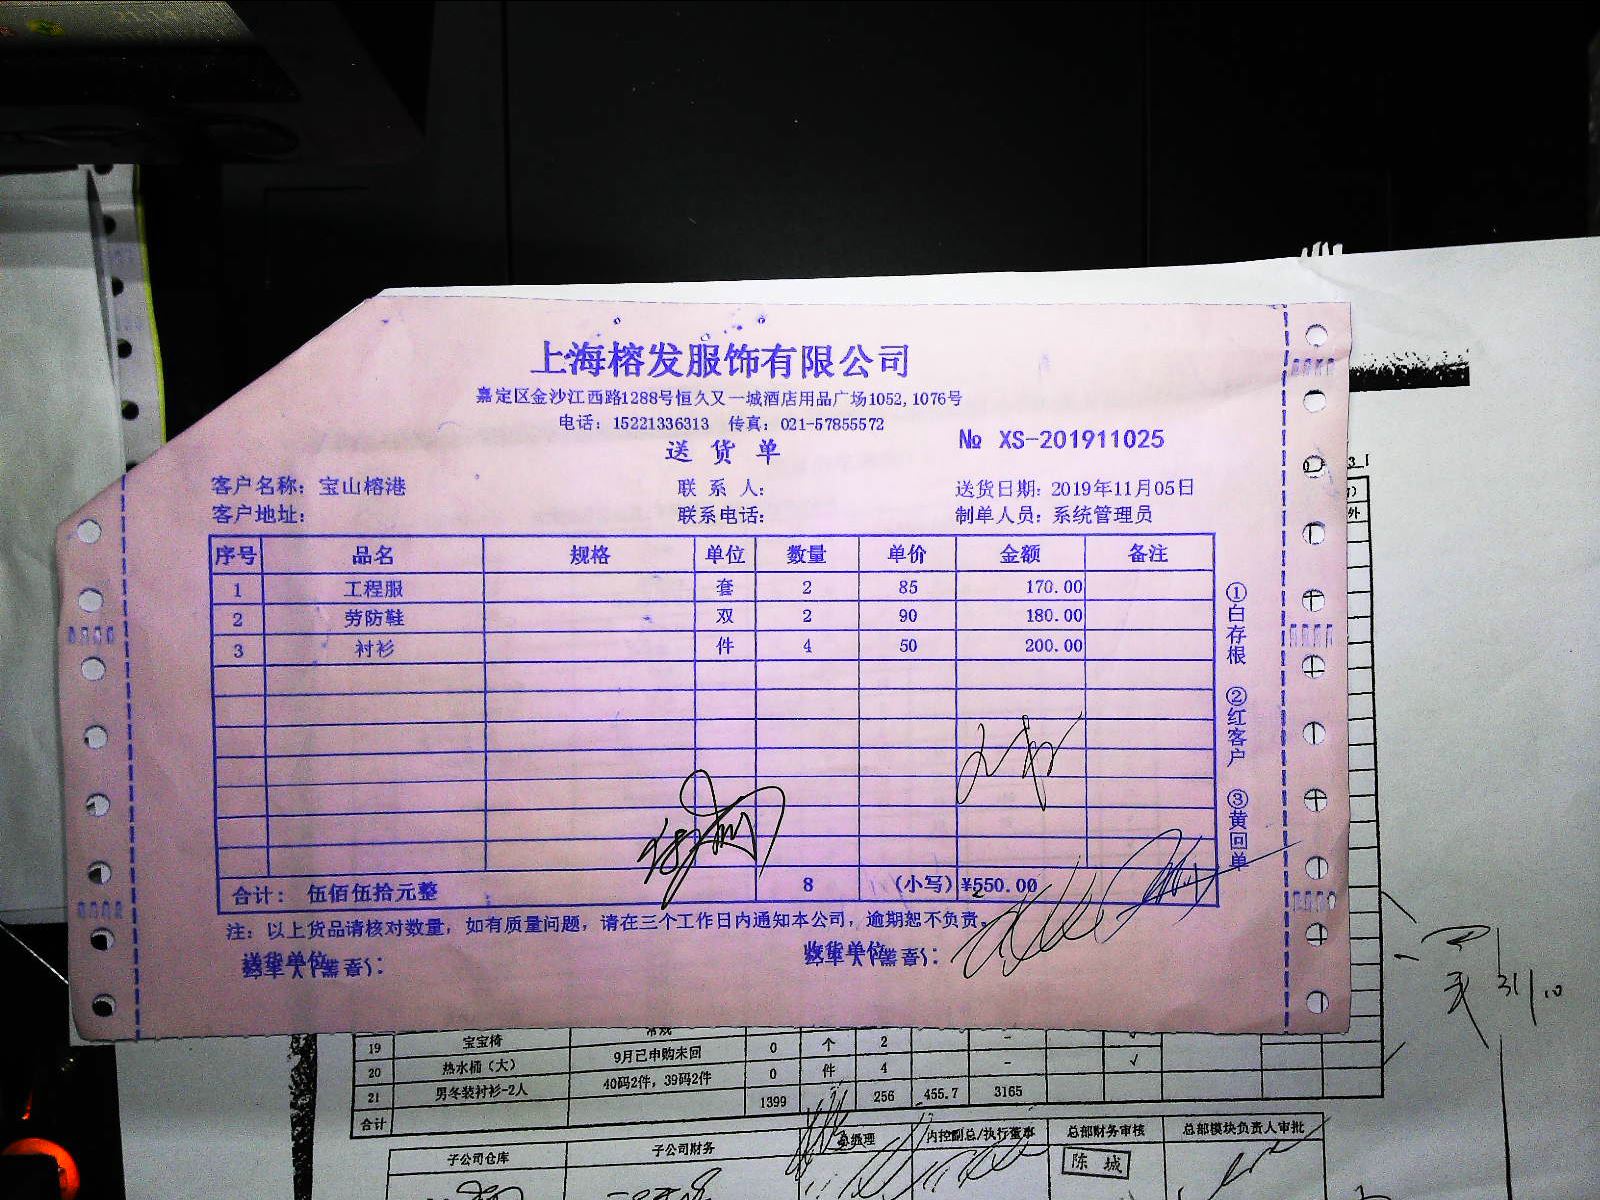 上海榕发服饰有限公司
嘉定区金沙江西路1288号恒久又一城酒店用品广场1052,1076号
电话：15221336313 传真：021-57855572
送 货 单
№ XS-201911025
客户名称：宝山榕港 联 系 人： 送货日期：2019年11月05日
客户地址： 联系电话： 制单人员：系统管理员
序号 品名 规格 单位 数量 单价 金额 备注
1 工程服 套 2 85 170.00
2 劳防鞋 双 2 90 180.00
3 衬衫 件 4 50 200.00
合计： 伍佰伍拾元整 8 （小写） ¥550.00
注：以上货品请核对数量，如有质量问题，请在三个工作日内通知本公司，逾期恕不负责。
送货单位
收货单位
①白存根 ②红客户 ③黄回单
19 宝宝椅 常规 0 个 2 -
20 热水桶（大） 9月已申购未回 0 件 4 - √
21 男冬装衬衫-2人 40码2件，39码2件
合计 1399 256 455.7 3165
子公司仓库 子公司财务 总经理 内控副总/执行董事 总部财务审核 总部模块负责人审批
陈 城